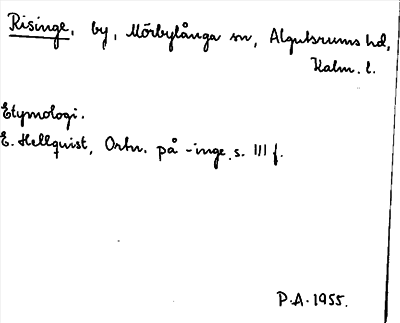 Risinge, by, Mörbylånga sn, Algutsrums hd,
Kalm. l.
Etymologi.
E. Hellquist, Ortn. på -inge s. 111 f.
P.A. 1955.